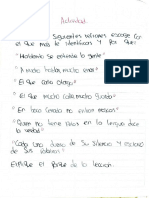 Actividad
Siguientes refranes escoge con
el que mas te identificas y por que:
"Hablando se entiende la gente"
"A mucho hablar, mucho errar"
"El que calla otorga"
"El que mucho calla mucho guarda"
"En boca cerrada no entran moscas"
"Quien no tiene Pelos en la lengua dice
la verdad"
"Cada uno es dueño de su silencio y esclavo
de sus
Explique el Porque de la elección.